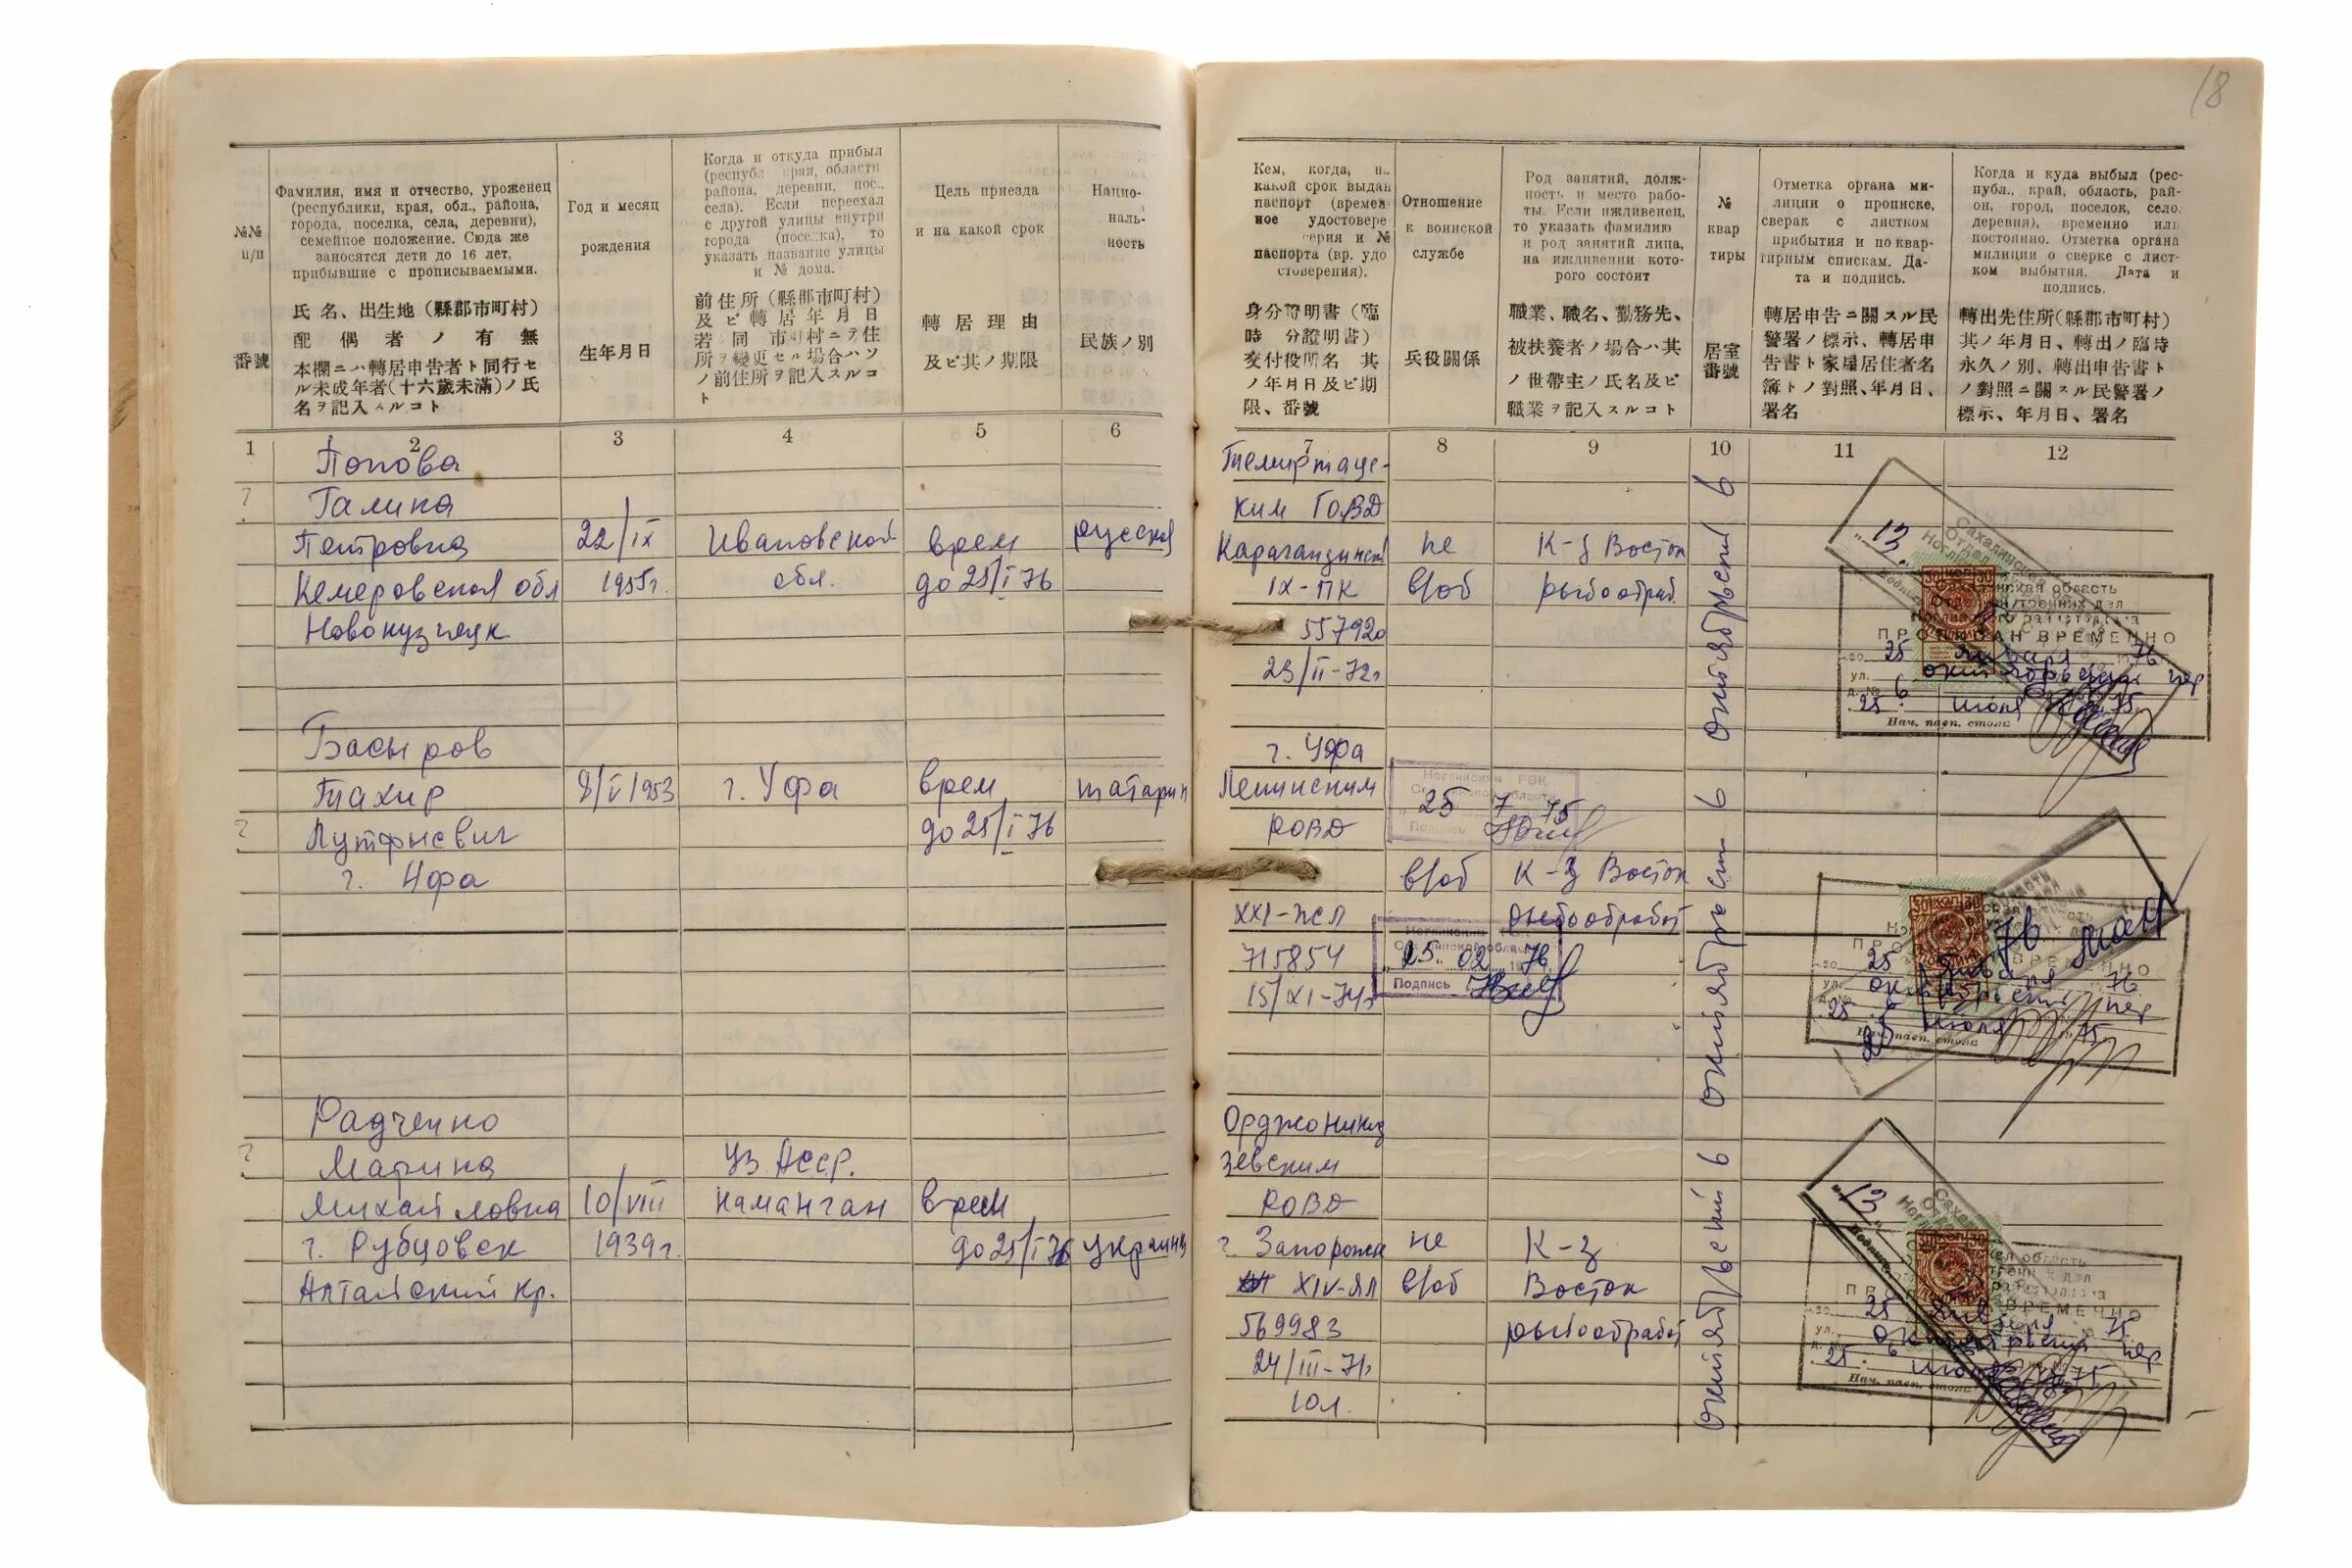 18
№№
п/п
番號
Фамилия, имя и отчество, уроженец
(республики, края, обл., района,
города, поселка, села, деревни),
семейное положение. Сюда же
заносятся дети до 16 лет,
прибывшие с прописываемыми.
氏名、出生地(縣郡市町村)
配偶者ノ有無
本欄ニハ轉居申告者ト同行セ
ル未成年者(十六歲未滿)ノ氏
名ヲ記入スルコト
Год и месяц
рождения
生年月日
Когда и откуда прибыл
(республ края, области
района, деревни, пос.,
села). Если переехал
с другой улицы внутри
города (поселка), то
указать название улицы
и № дома.
前住所(縣郡市町村)
及ビ轉居年月日
若同市町村ニテ住
所ヲ變更セル場合ハソ
ノ前住所ヲ記入スルコ
ト
Цель приезда
и на какой срок
轉居理由
及ビ其ノ期限
Нацио-
наль-
ность
民族ノ別
Кем, когда, н..
какой срок выдан
паспорт (времен-
ное удостовере
серия и №
паспорта (вр. удо
стоверения).
身分證明書(臨
時 分證明書)
交付役所名 其
ノ年月日及ビ期
限、番號
Отношение
к воинской
службе
兵役關係
Род занятий, долж-
ность и место рабо-
ты. Если иждивенец,
то указать фамилию
и род занятий лица,
на иждивении кото-
рого состоит
職業、職名、勤務先、
被扶養者ノ場合ハ其
ノ世帶主ノ氏名及ビ
職業ヲ記入スルコト
№
квар
тиры
居室
番號
Отметка органа ми-
лиции о прописке,
сверак с листком
прибытия и по квар-
тирным спискам. Да-
та и подпись.
轉居申告ニ關スル民
警署ノ標示、轉居申
告書ト家屋居住者名
簿トノ對照、年月日、
署名
Когда и куда выбыл (рес-
публ., край, область, рай-
он, город, поселок, село.
деревня), временно или
постоянно. Отметка органа
милиции о сверке с лист-
ком выбытия. Дата и
подпись.
轉出先住所(縣郡市町村)
其ノ年月日、轉出ノ臨時
永久ノ別、轉出申告書ト
ノ對照ニ關スル民警署ノ
標示、年月日、署名
1 2 3 4 5 6 7 8 9 10 11 12
Попова
Галина
Петровна
Кемеровская обл
Новокузнецк
22/IX
1955г.
Ивановской
обл.
врем
до 25/I 76
русская
Темиртаус-
ким ГОВД
Карагандинской
IX-ПК
557920
23/II-72г
не
в/об
К-з Восток
рыбообраб.
октябрьский 6
13
ПРОПИСАН ВРЕМЕННО
25 января 76
ул. октябрьский пер
д. № 6
25 июля 75
Нач. пасп. стола
Басыров
Тахир
Лутфиевич
г. Уфа
8/V 1953
г. Уфа
врем
до 25/I 76
татарин
г. Уфа
Ленинским
РОВД
XXI-жсл
715854
15/XI-74г
Ногликским РВК
25 7 75
Подпись
в/об
К-з Восток
рыбообработ
25 02 76
Подпись
октябрьский 6
76 март
25 января 76
ул. октябрьский пер
25 июля 75
Нач. пасп. стола
Радченко
Марина
Михайловна
г. Рубцовск
Алтайский кр.
10/VIII
1939г.
Уз АССР.
Наманган
врем
до 25/I 76
украинка
Орджоники
зевским
РОВД
г. Запорожья
XIV-ЯЛ
569983
24/III-71г
10л.
не
в/об
К-з
Восток
рыбообработ
октябрьский 6
13
25 января 75
ул. октябрьский пер
25 июля 75
Нач. пасп. стола